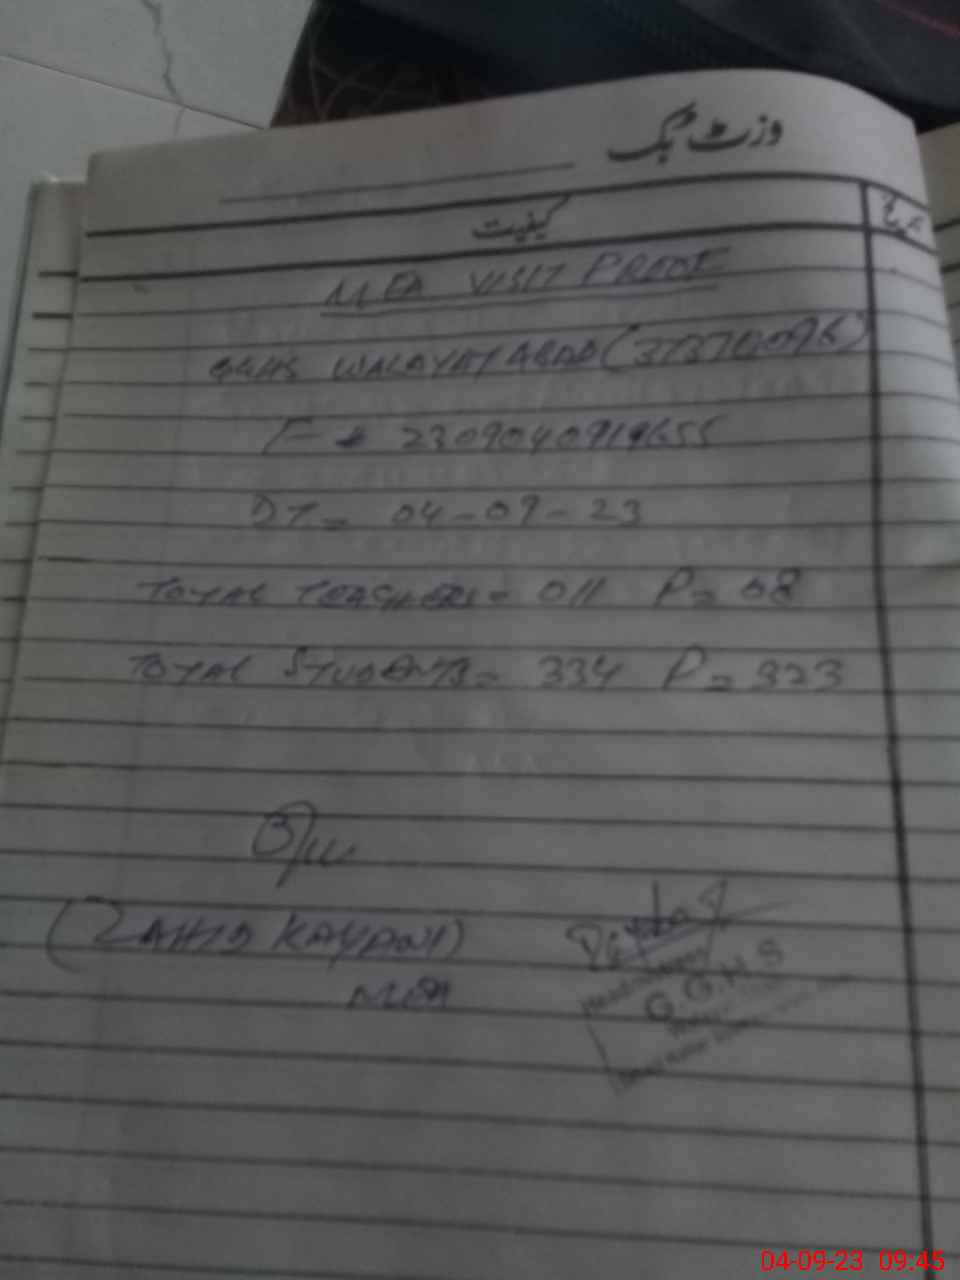 وزٹ بک
کیفیت
تاریخ
MEA VISIT PROOF
GGHS WALAYATABAD (37370096)
F # 2309040919655
DT = 04-09-23
TOTAL TEACHERS = 011 P = 08
TOTAL STUDENTS = 334 P = 323
(ZAHID KAYANI)
MEA
G.G.H.S
04-09-23 09:45